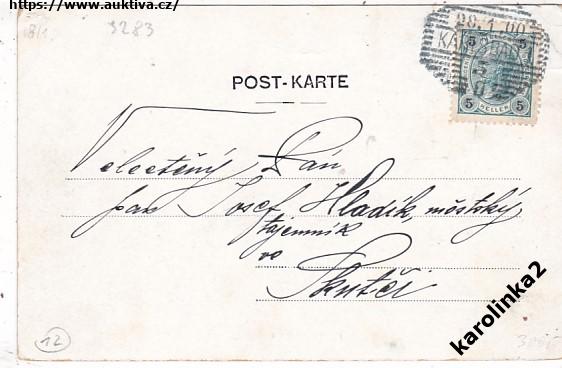 https://www.auktiva.cz/
3283
POST-KARTE
5 5
5 5
HELLER
Velectěný Pán
pan Josef Hladík, městský
tajemník
ve
Skutči
12
karolinka2